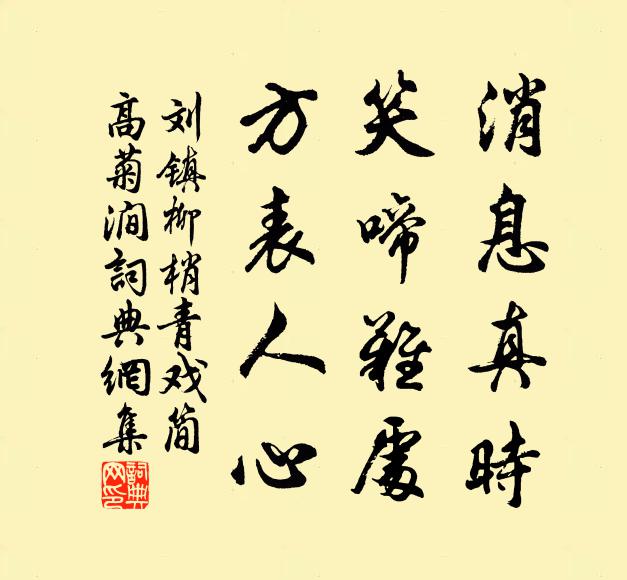 消息真時
笑啼難處
方表人心
刘镇柳梢青戏简
高菊澗詞典網集
詞典
网印